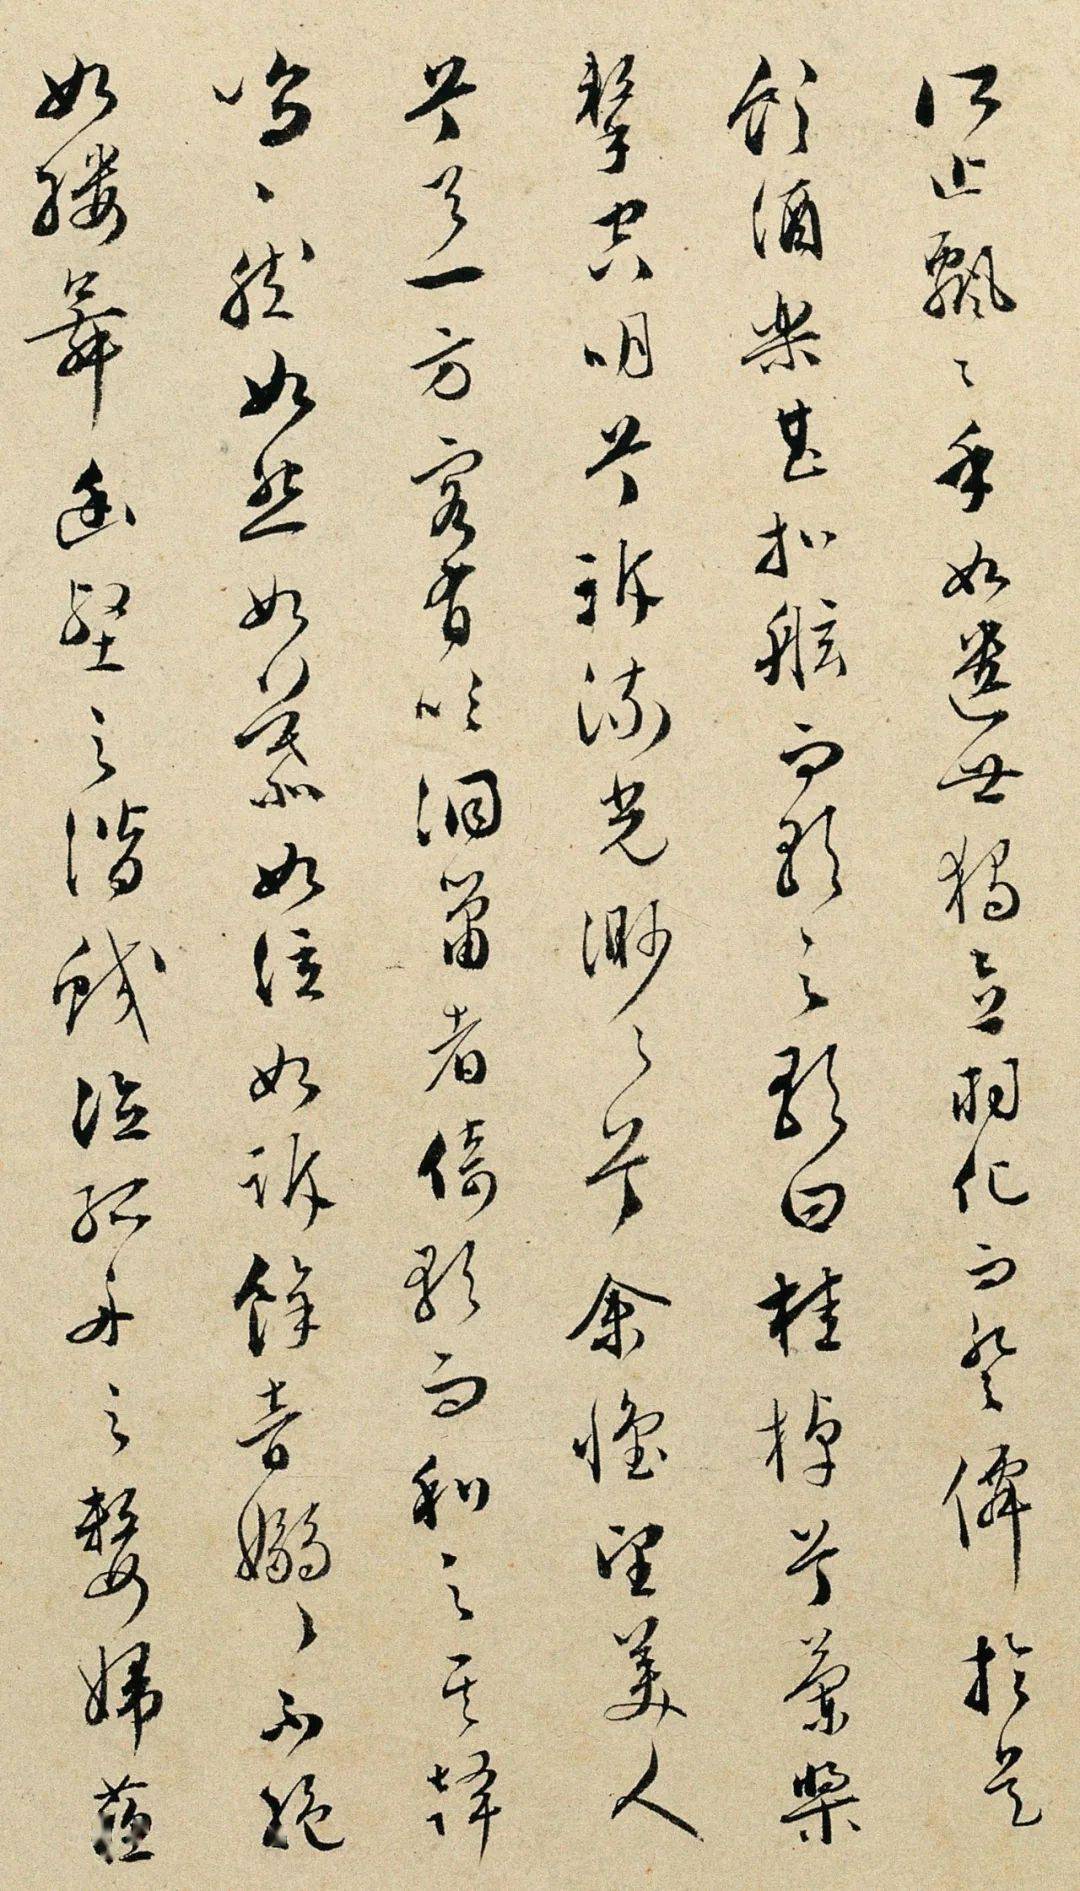 所止飄〻乎如遺世獨立羽化而登僊於是
飲酒樂甚扣舷而歌之歌曰桂棹兮蘭槳
擊空明兮訴流光渺〻兮余懷望美人
兮天一方客有吹洞簫者倚歌而和之其聲
嗚〻然如怨如慕如泣如訴餘音嫋〻不絕
如縷舞幽壑之潛蛟泣孤舟之嫠婦